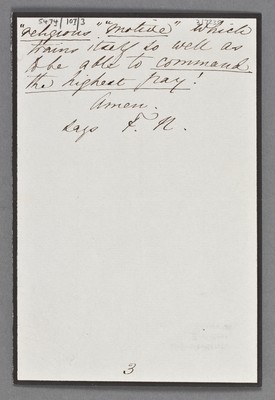 5474/107/3
"religious" "motive" which
trains itself so well as
to be able to command
the highest pay!
Amen.
says F. N.
3